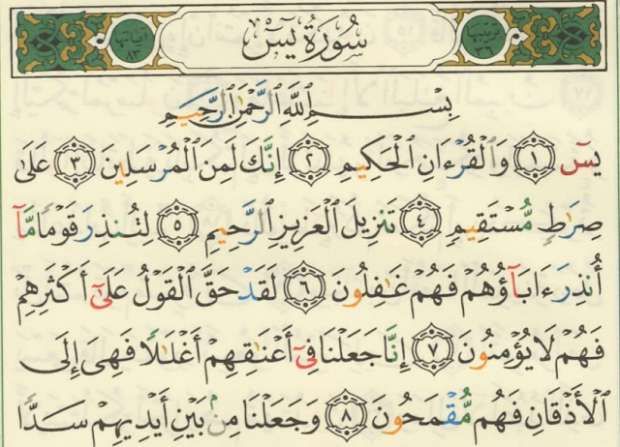 سُورَةُ يسٓ
بِسْمِ ٱللَّهِ ٱلرَّحْمَٰنِ ٱلرَّحِيمِ
يسٓ ١ وَٱلْقُرْءَانِ ٱلْحَكِيمِ ٢ إِنَّكَ لَمِنَ ٱلْمُرْسَلِينَ ٣ عَلَىٰ
صِرَٰطٍ مُّسْتَقِيمٍ ٤ تَنزِيلَ ٱلْعَزِيزِ ٱلرَّحِيمِ ٥ لِتُنذِرَ قَوْمًا مَّآ
أُنذِرَ ءَابَآؤُهُمْ فَهُمْ غَٰفِلُونَ ٦ لَقَدْ حَقَّ ٱلْقَوْلُ عَلَىٰٓ أَكْثَرِهِمْ
فَهُمْ لَا يُؤْمِنُونَ ٧ إِنَّا جَعَلْنَا فِىٓ أَعْنَٰقِهِمْ أَغْلَٰلًا فَهِىَ إِلَى
ٱلْأَذْقَانِ فَهُم مُّقْمَحُونَ ٨ وَجَعَلْنَا مِنۢ بَيْنِ أَيْدِيهِمْ سَدًّا